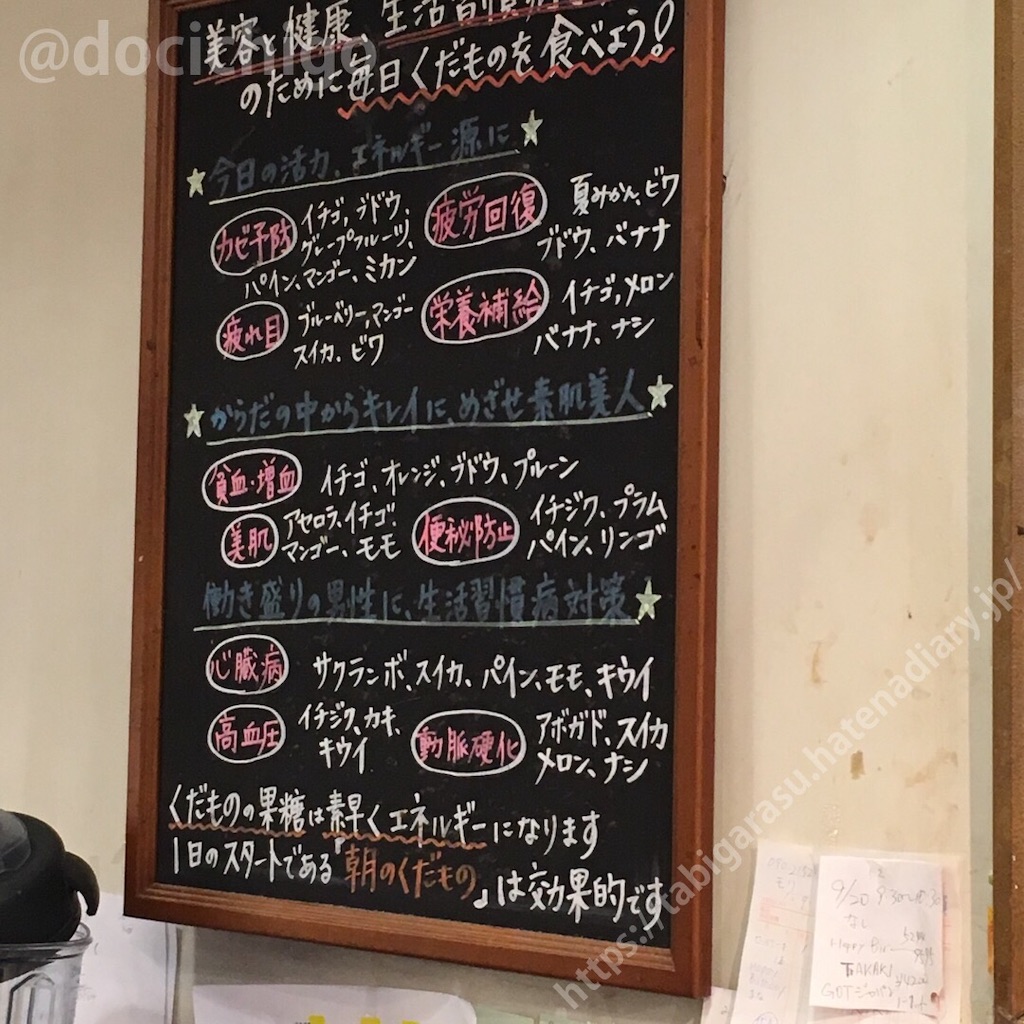 @docichigo
美容と健康、生活習慣病
のために毎日くだものを食べよう!
★今日の活力、エネルギー源に★
カゼ予防 イチゴ、ブドウ、
グレープフルーツ、
パイン、マンゴー、ミカン
疲労回復 夏みかん、ビワ
ブドウ、バナナ
疲れ目 ブルーベリー、マンゴー
スイカ、ビワ
栄養補給 イチゴ、メロン
バナナ、ナシ
★からだの中からキレイに、めざせ素肌美人★
貧血・増血 イチゴ、オレンジ、ブドウ、プルーン
美肌 アセロラ、イチゴ、
マンゴー、モモ
便秘防止 イチジク、プラム
パイン、リンゴ
働き盛りの男性に、生活習慣病対策★
心臓病 サクランボ、スイカ、パイン、モモ、キウイ
高血圧 イチジク、カキ、
キウイ
動脈硬化 アボガド、スイカ
メロン、ナシ
くだものの果糖は素早くエネルギーになります
1日のスタートである『朝のくだもの』は効果的です
9/20
なし
TAKAKI
https://tabigarasu.hatenadiary.jp/